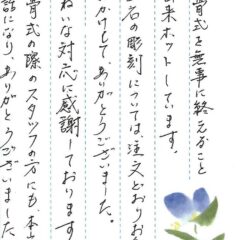 骨式を無事に終えること
出来ホットしています。
石の彫刻については、注文どおりお
かけして、ありがとうございました。
ねいな対応に感謝しております
骨式の際のスタッフの方にも、本当
話になり、ありがとうございました